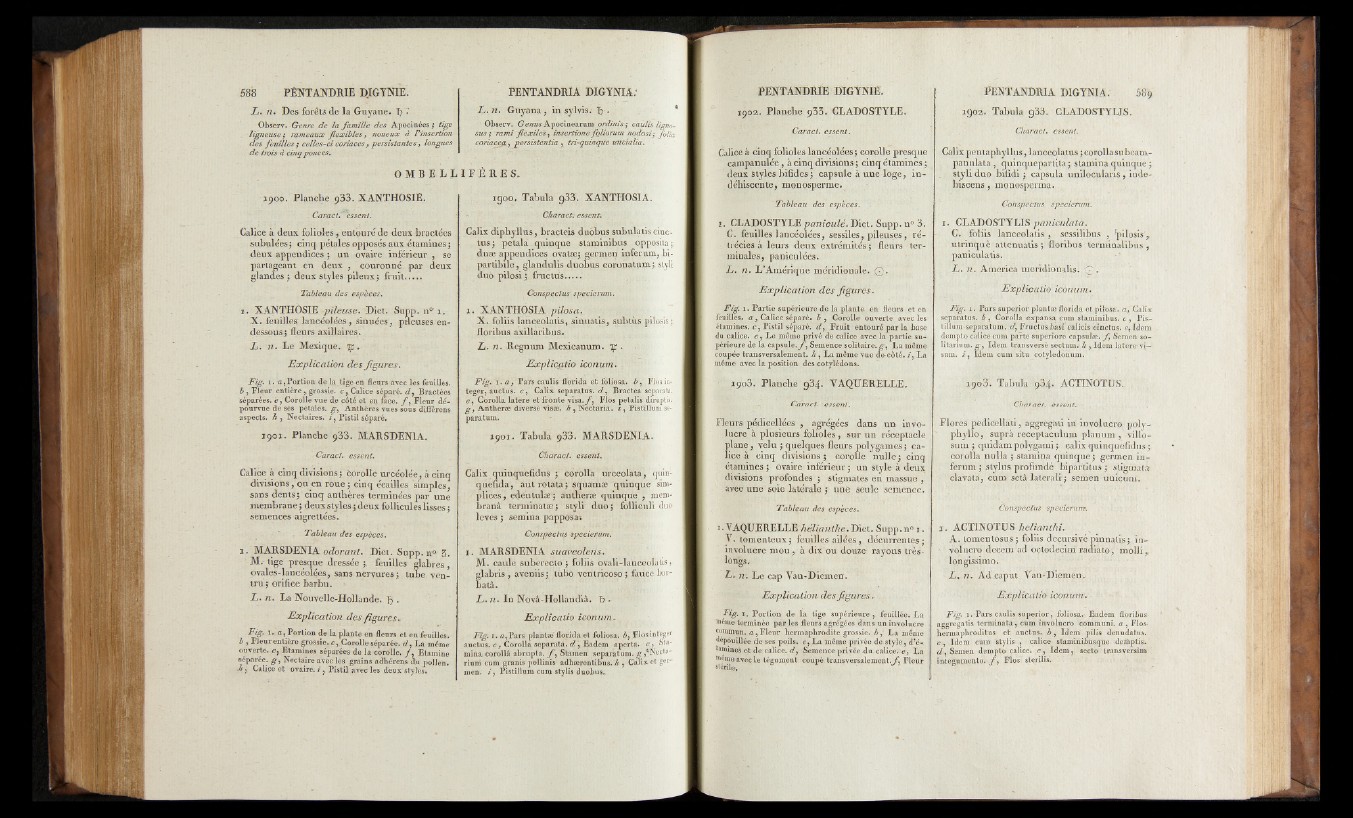 588 PENTANDRIE DIGYNIE.
L. n. Des forêts de la Guyane. ♄.
Observ. Genre de la famille des Apocinées ; tige
ligneuse ; rameaux flexibles, noueux à l'insertion
des feuilles ; celles-ci coriaces, persistantes, longues
de trois à cinq pouces.
PENTANDRIA DIGYNIA.
L. n. Guyana, in sylvis. ♄.
Observ. Genus Apocinearum ordinis ; caulis ligno-
sus ; rami flexiles, insertione foliorum nodosi ; folia
coriacea, persistentia, tri-quinque uncialia.
OMBELLIFÈRES.
1900. Planche 933. XANTHOSIE.
Caract. essent.
Calice à deux folioles, entouré de deux bractées
subulées ; cinq pétales opposés aux étamines ;
deux appendices ; un ovaire inférieur , se
partageant en deux , couronné par deux
glandes ; deux styles pileux ; fruit.....
Tableau des espèces.
1. XANTHOSIE pileuse. Dict. Supp. n° 1.
X. feuilles lancéolées, sinuées, pileuses en-
dessous ; fleurs axillaires.
L. n. Le Mexique. ♃.
Explication des figures.
Fig. 1. a, Portion de la tige en fleurs avec les feuilles.
b, Fleur entière, grossie. c, Calice séparé. d, Bractées
séparées. e, Corolle vue de côté et en face. f, Fleur dé-
pourvue de ses pétales. g, Anthères vues sous différens
aspects. h, Nectaires. i, Pistil séparé.
1901. Planche 933. MARSDENIA.
Caract. essent.
Calice à cinq divisions ; corolle urcéolée, à cinq
divisions, ou en roue ; cinq écailles simples,
sans dents ; cinq anthères terminées par une
membrane ; deux styles ; deux follicules lisses ;
semences aigrettées.
Tableau des espèces.
1. MARSDENIA odorant. Dict. Supp. n° 3.
M. tige presque dressée ; feuilles glabres,
ovales-lancéolées, sans nervures ; tube ven-
tru ; orifice barbu.
L. n. La Nouvelle-Hollande. ♄.
Explication des figures.
Fig. 1. a, Portion de la plante en fleurs et en feuilles.
b, Fleur entière grossie. c, Corolle séparée. d, La même
ouverte. e, Etamines séparées de la corolle. f, Etamine
séparée. g, Nectaire avec les grains adhérens du pollen.
h, Calice et ovaire. i, Pistil avec les deux styles.
1900. Tabula 933. XANTHOSIA.
Charact. essent.
Calix diphyllus, bracteis duobus subulatis cinc-
tus ; petala quinque staminibus opposita ;
duæ appendices ovatæ ; germen inferum, bi-
partibile, glandulis duobus coronatum ; styli
duo pilosi ; fructus.....
Conspectus specierum.
1. XANTHOSIA pilosa.
X. foliis lanceolatis, sinuatis, subtùs pilosis ;
floribus axillaribus.
L. n. Regnum Mexicanum. ♃.
Explicatio iconum.
Fig. 1. a, Pars caulis florida et foliosa. b, Flos in-
teger, auctus. c, Calix separatus. d, Bractea separata.
e, Corolla latere et fronte visa. f, Flos petalis direptis.
g, Antheræ diverse visæ. h, Nectaria. i, Pistillum se-
paratum.
1901. Tabula 933. MARSDENIA.
Charact. essent.
Calix quinquefidus ; corolla urceolata, quin-
quefida, aut rotata ; squamæ quinque sim-
plices, edentulæ ; antheræ quinque , mem-
branâ terminatæ ; styli duo ; folliculi duo
leves ; semina papposa.
Conspectus specierum.
1. MARSDENIA suaveolens.
M. caule suberecto ; foliis ovali-lanceolatis,
glabris, aveniis ; tubo ventricoso ; fauce bar-
batâ.
L. n. In Novâ-Hollandiâ. ♄.
Explicatio iconum.
Fig. 1. a, Pars plantæ florida et foliosa. b, Flos integer
auctus. c, Corolla separata. d, Eadem aperta. e, Sta-
mina corollâ abrupta. f, Stamen separatum. g, Necta-
rium cum granis pollinis adhærentibus. h, Calix et ger-
men. i, Pistillum cum stylis duobus.
PENTANDRIE DIGYNIE.
1902. Planche 933. CLADOSTYLE.
Caract. essent.
Calice à cinq folioles lancéolées ; corolle presque
campanulée, à cinq divisions ; cinq étamines ;
deux styles bifides ; capsule à une loge, in-
déhiscente, monosperme.
Tableau des espèces.
1. CLADOSTYLE paniculé. Dict. Supp. n° 3.
C. feuilles lancéolées, sessiles, pileuses, ré-
trécies à leurs deux extrémités ; fleurs ter-
minales, paniculées.
L. n. L'Amérique méridionale. ☉.
Explication des figures.
Fig. 1. Partie supérieure de la plante en fleurs et en
feuilles. a, Calice séparé. b, Corolle ouverte avec les
étamines. c, Pistil séparé. d, Fruit entouré par la base
du calice. e, Le même privé de calice avec la partie su-
périeure de la capsule. f, Semence solitaire. g, La même
coupée transversalement. h, La même vue de côté. i, La
même avec la position des cotylédons.
1903. Planche 934. VAQUERELLE.
Caract. essent.
Fleurs pédicellées , agrégées dans un invo-
lucre à plusieurs folioles, sur un réceptacle
plane, velu ; quelques fleurs polygames ; ca-
lice à cinq divisions ; corolle nulle ; cinq
étamines ; ovaire inférieur ; un style à deux
divisions profondes ; stigmates en massue ,
avec une soie latérale ; une seule semence.
Tableau des espèces.
1. VAQUERELLE hélianthe. Dict. Supp. n° 1.
V. tomenteux ; feuilles ailées, décurrentes ;
involucre mou, à dix ou douze rayons très-
longs.
L. n. Le cap Van-Diemen.
Explication des figures.
Fig. 1. Portion de la tige supérieure, feuillée. La
même terminée par les fleurs agrégées dans un involucre
commun. a, Fleur hermaphrodite grossie. b, La même
dépouillée de ses poils. c, La même privée de style, d'é-
tamines et de calice. d, Semence privée du calice. e, La
même avec le tégument coupé transversalement. f, Fleur
stérile.
PENTANDRIA DIGYNIA. 589
1902. Tabula 933. CLADOSTYLIS.
Charact. essent.
Calix pentaphyllus, lanceolatus ; corolla subcam-
panulata, quinquepartita ; stamina quinque ;
styli duo bifidi ; capsula unilocularis, inde-
hiscens, monosperma.
Conspectus specierum.
1. CLADOSTYLIS paniculata.
C. foliis lanceolatis , sessilibus , pilosis,
utrinquè attenuatis ; floribus terminalibus,
paniculatis.
L. n. America meridionalis. ☉.
Explicatio iconum.
Fig. 1. Pars superior plantæ florida et pilosa. a, Calix
separatus. b, Corolla expansa cum staminibus. c, Pis-
tillum separatum. d, Fructus basi calicis cinctus. e, Idem
dempto calice cum parte superiore capsulæ. f, Semen so-
litarium. g, Idem transversè sectum. h, Idem latere vi-
sum. i, Idem cum situ cotyledonum.
1903. Tabula 934. ACTINOTUS.
Charact. essent.
Flores pedicellati, aggregati in involucro poly-
phyllo, suprà receptaculum planum, villo-
sum ; quidam polygami ; calix quinquefidus ;
corolla nulla ; stamina quinque ; germen in-
ferum ; stylus profundè bipartitus ; stigmata
clavata, cum setâ laterali ; semen unicum.
Conspectus specierum.
1. ACTINOTUS helianthi.
A. tomentosus ; foliis decursivè pinnatis ; in-
volucro decem ad octodecim radiato, molli,
longissimo.
L. n. Ad caput Van-Diemen.
Explicatio iconum.
Fig. 1. Pars caulis superior, foliosa. Eadem floribus
aggregatis terminata, cum involucro communi. a, Flos
hermaphroditus et auctus. b, Idem pilis denudatus.
c, Idem cum stylis, calice staminibusque demptis.
d, Semen dempto calice. e, Idem, secto transversim
integumento. f, Flos sterilis.